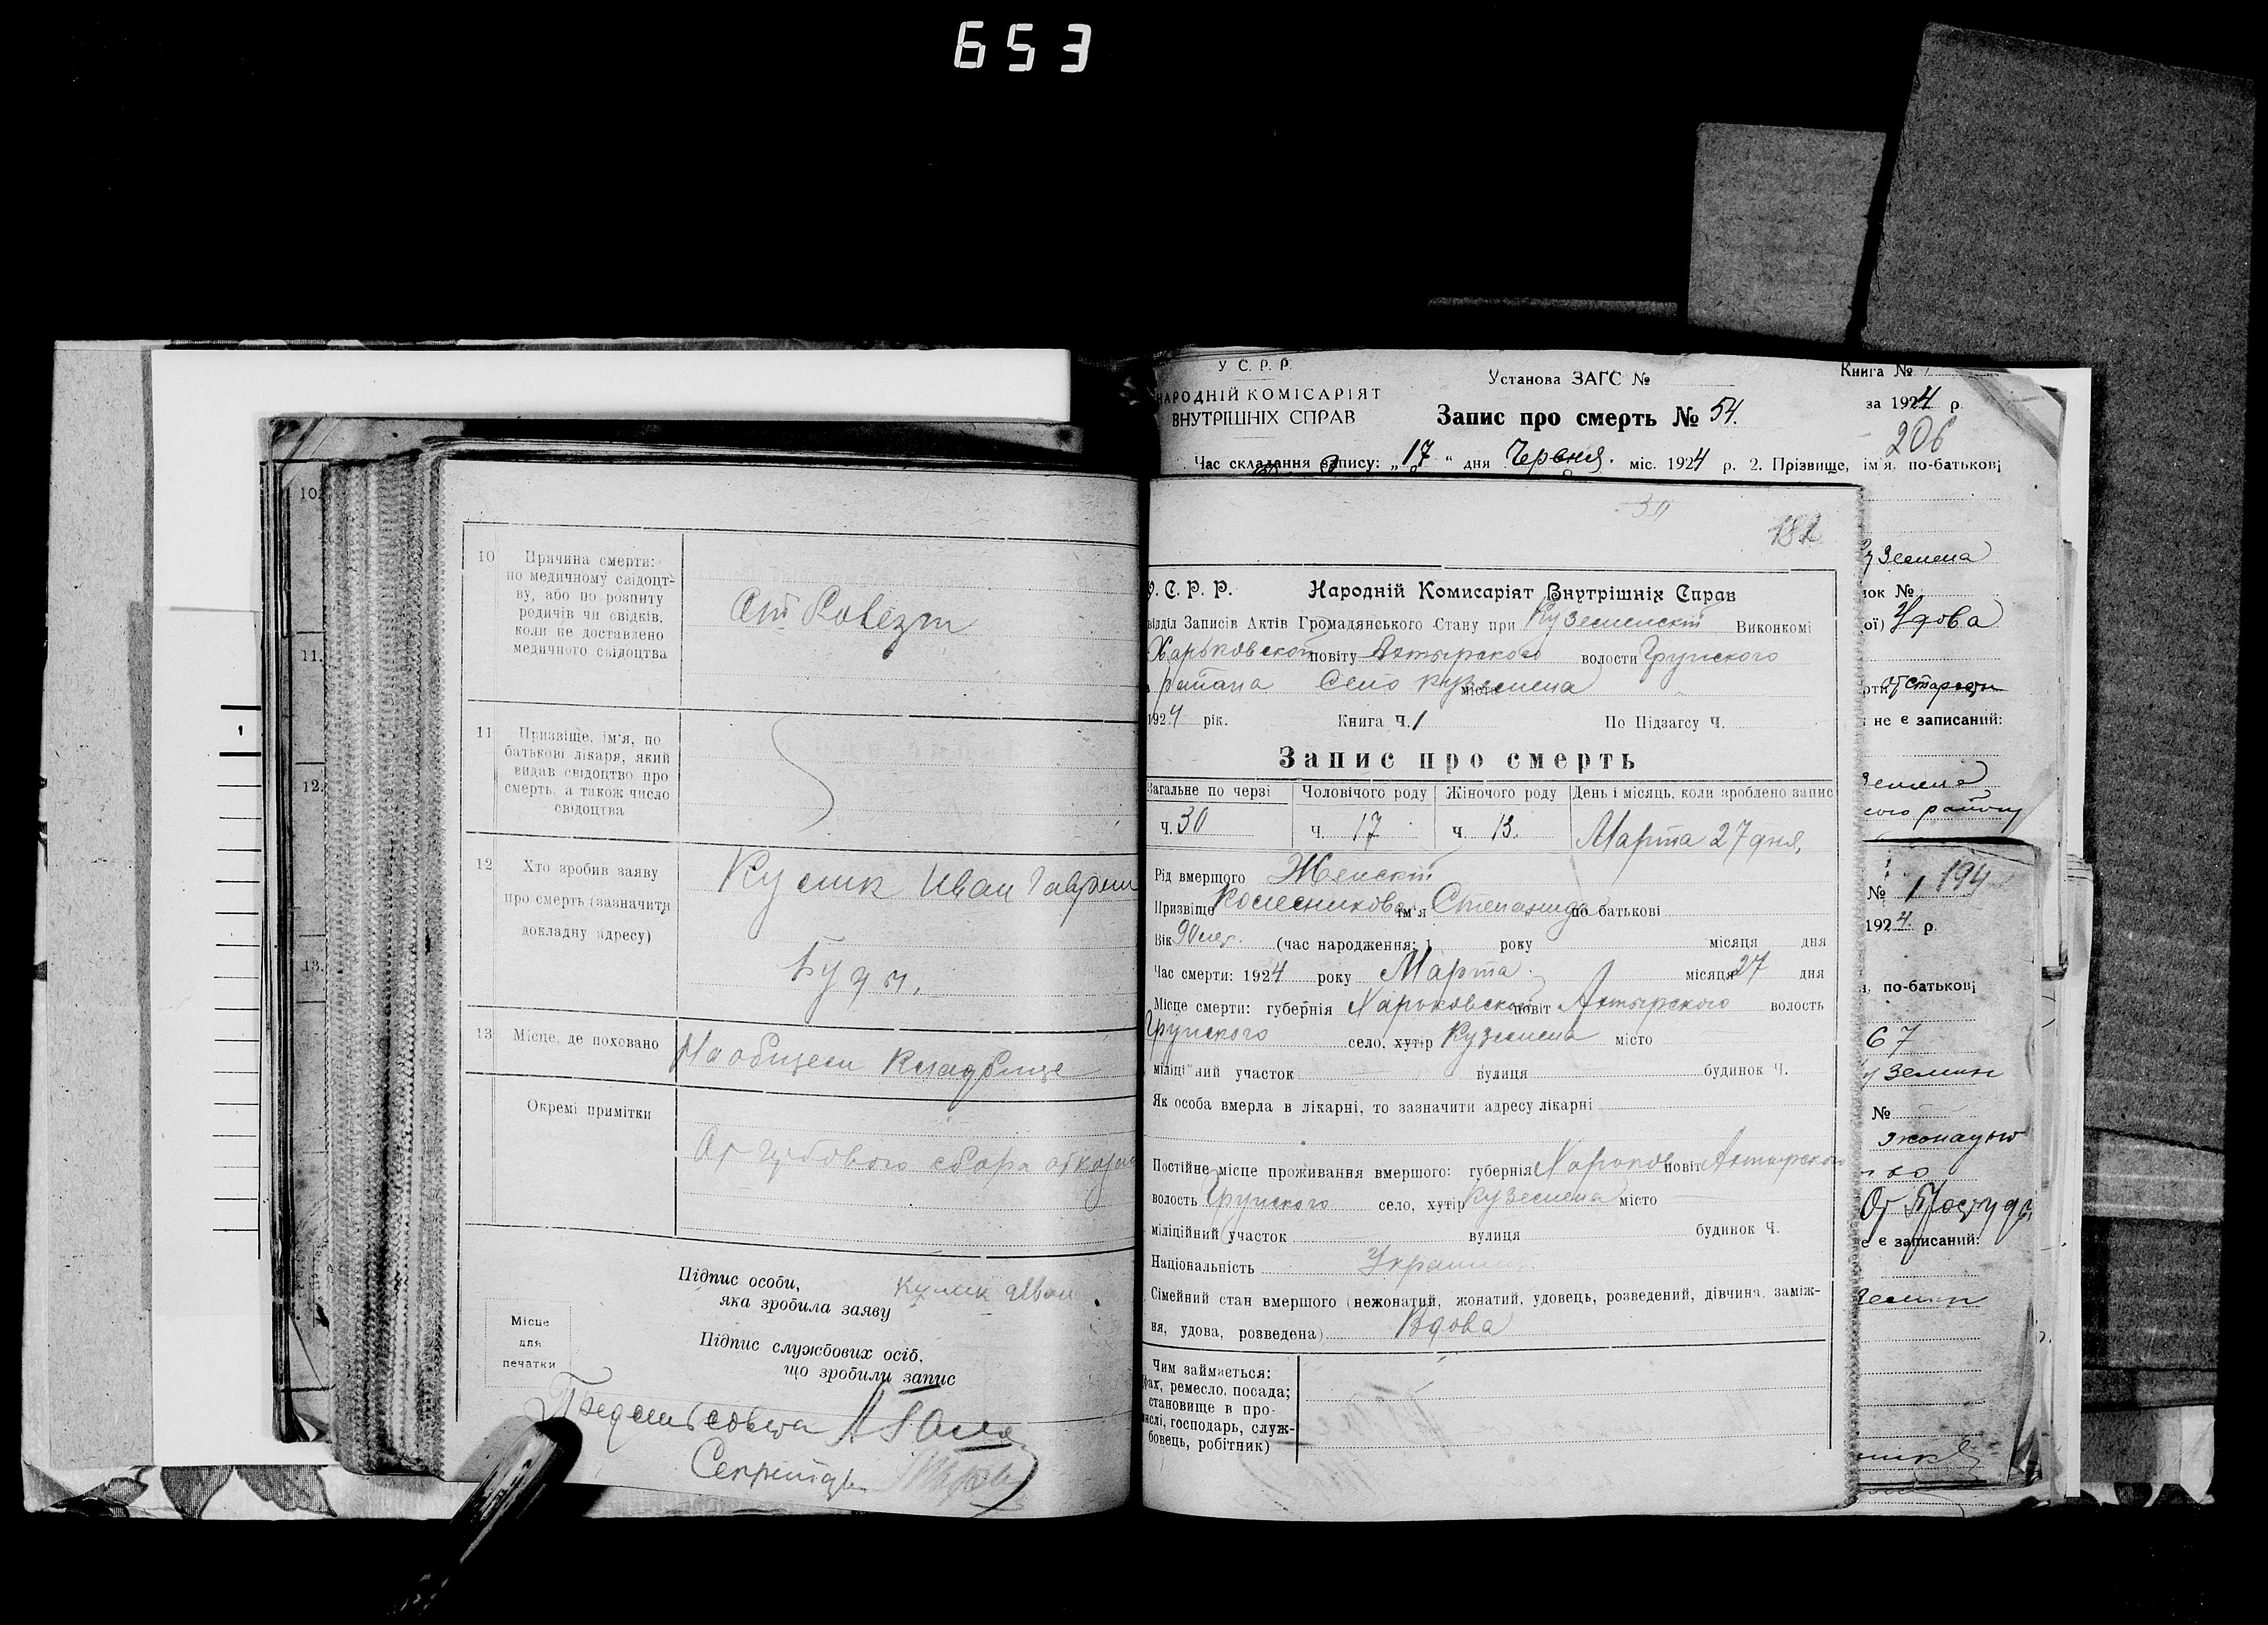 653
10
Причина смерти:
по медичному свідоцт-
ву, або по розпиту
родичів чи свідків,
коли не доставлено
медичного свідоцтва
11
Призвіще, ім'я, по
батькові лікаря, який
видав свідоцтво про
смерть, а також число
свідоцтва
12
Хто зробив заяву
про смерть (зазначити
докладну адресу)
Кулик Иван
13 Місце, де поховано
На общем кладбище
Окремі примітки
сбора
Підпис особи,
яка зробила заяву
Кулик Иван
Підпис службових осіб,
що зробили запис
Місце
для
печатки
10.
11.
12.
13.
У С. Р. Р.
НАРОДНІЙ КОМІСАРІЯТ
ВНУТРІШНІХ СПРАВ
Установа ЗАГС №
Запис про смерть № 54.
Книга №
за 1924 р.
206
Час складання запису: „17“ дня Червня. міс. 1924 р. 2. Прізвище, ім'я, по-батькові
30
182
У. С. Р. Р. Народній Комисаріят Внутрішніх Справ
відділ Записів Актів Громадянського Стану при Виконкомі
Харьковской повіту Ахтырского волости Грунского
района Село Куземена міста
1924 рік. Книга Ч. 1 По Підзагсу Ч.
Запис про смерть
Загальне по черзі Чоловічого роду Жіночого роду День і місяць, коли зроблено запис
ч. 30 ч. 17 ч 13. Марта 27 дня,
Рід вмершого Женскій
Призвіще Колесникова ім'я Степанида по батькові
Вік 90 лет. (час народження: 1 року місяця дня
Час смерти: 1924 року Марта місяця 27 дня
Місце смерти: губернія Харьковской повіт Ахтырского волость
Грунского село, хутір Куземена місто
міліційний участок вулиця будинок Ч.
Як особа вмерла в лікарні, то зазначити адресу лікарні
Постійне місце проживання вмершого: губернія Харьков повіт Ахтырского
волость Грунского село, хутір Куземена місто
міліційний участок вулиця будинок Ч.
Національність
Сімейний стан вмершого (нежонатий, жонатий, удовець, розведений, дівчина, заміж-
ня, удова, розведена) Вдова
Чим займається:
фах, ремесло, посада;
становище в про-
мислі, господарь, служ-
бовець, робітник)
№
Удова
не є записаний:
№ 1 194
1924. р.
по-батькові
67
№
є записаний: